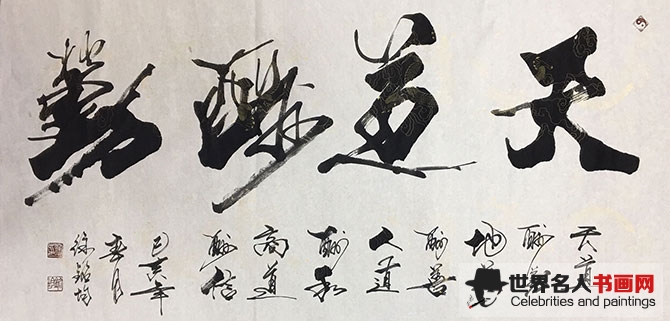 天道酬勤
天道
酬勤
地道
酬善
人道
酬和
商道
酬信
己亥年
春月
世界名人书画网
Celebrities and paintings